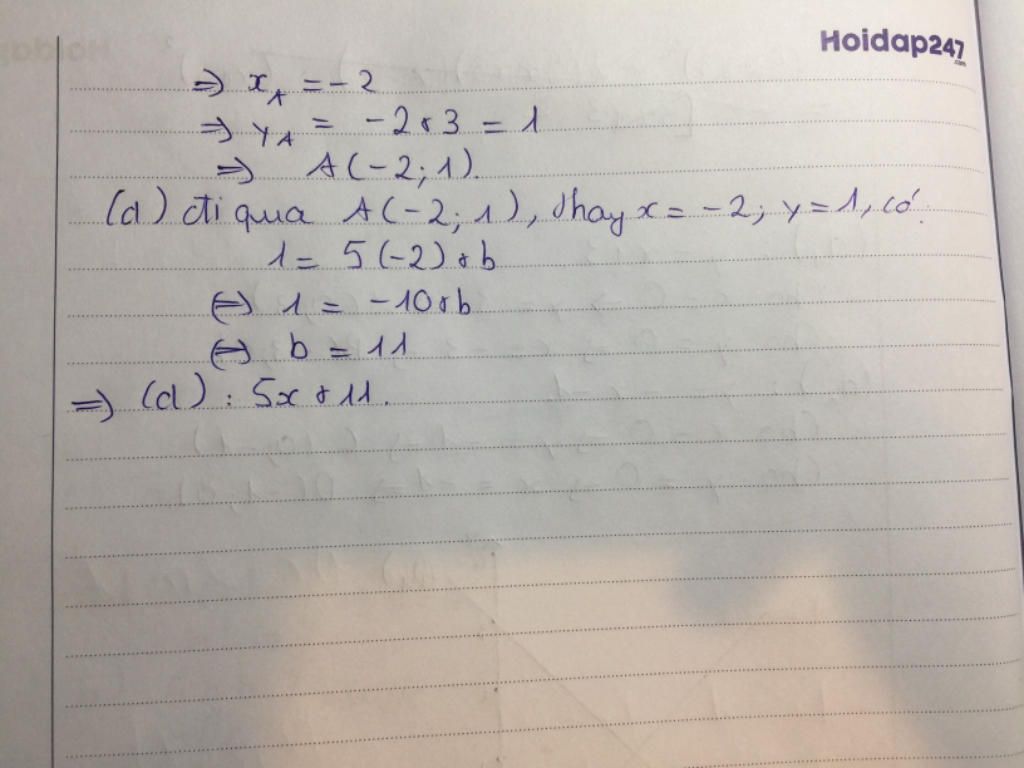 Hoidap247
.com
⇒ x_A = -2
⇒ y_A = -2 + 3 = 1
⇒ A(-2; 1).
(d) đi qua A(-2; 1), thay x = -2; y = 1, có:
1 = 5(-2) + b
⇔ 1 = -10 + b
⇔ b = 11
⇒ (d) : 5x + 11.